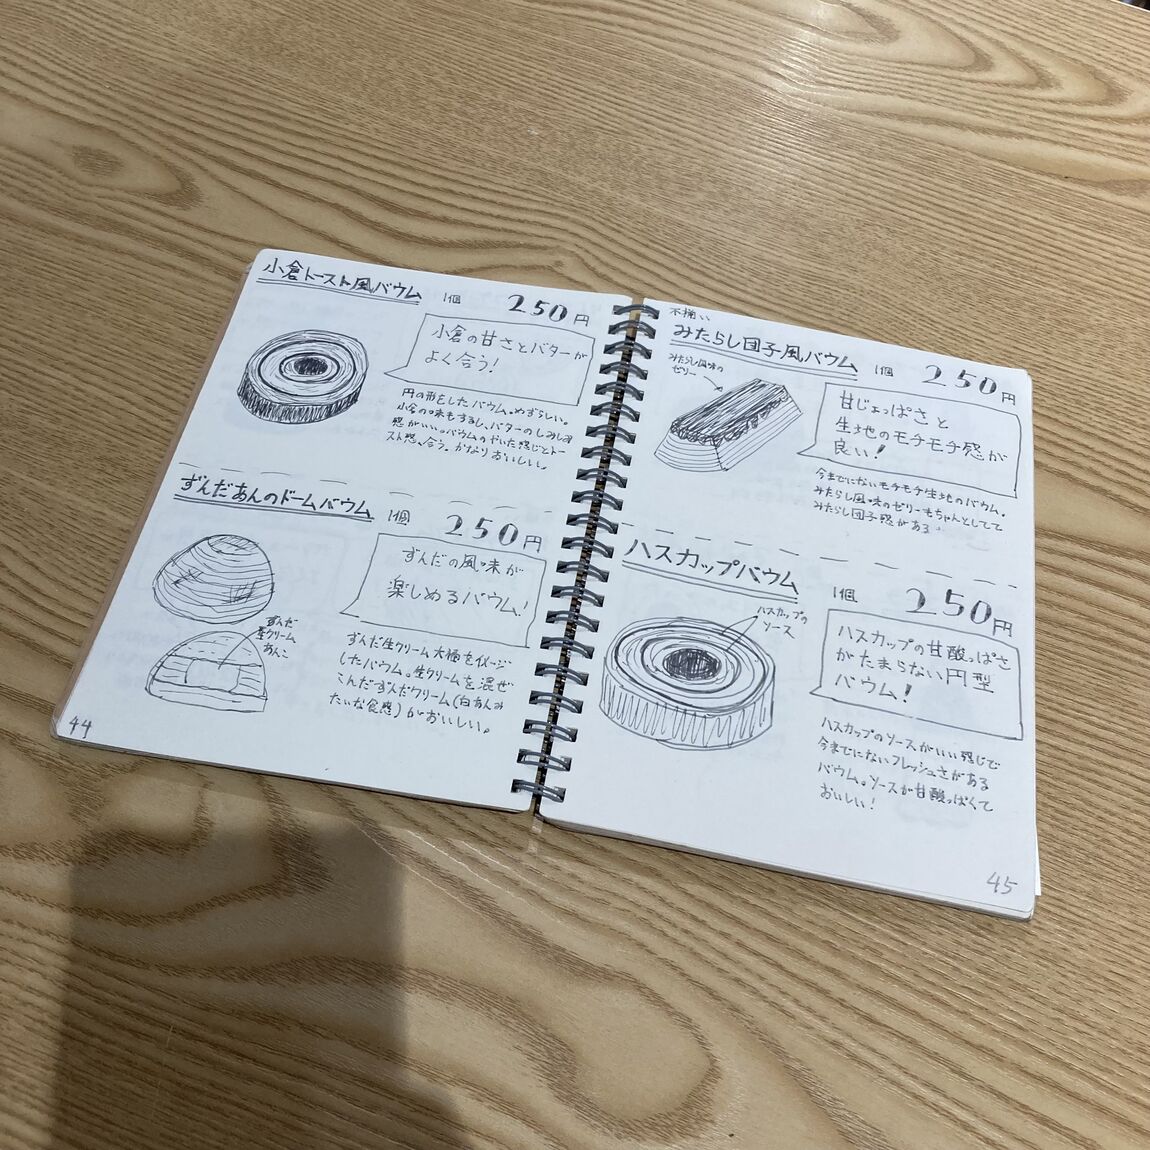 小倉トースト風バウム 1個 250円
小倉の甘さとバターが
よく合う!
円の形をしたバウム。めずらしい。
小倉の味もするし、バターのしみしみ
感がいい。バウムのやいた感じとトー
スト感、合う。かなりおいしい。
ずんだあんのドームバウム 1個 250円
ずんだの風味が
楽しめるバウム!
ずんだ
生クリーム
あんこ
ずんだ生クリーム大福をイメージ
したバウム。生クリームを混ぜ
こんだずんだクリーム(白あんみ
たいな食感)がおいしい。
44
不揃い
みたらし団子風バウム 1個 250円
みたらし風味の
ゼリー
甘じょっぱさと
生地のモチモチ感が
良い!
今までにないモチモチ生地のバウム。
みたらし風味のゼリーもちゃんとしてて
みたらし団子感がある
ハスカップバウム 1個 250円
ハスカップの
ソース
ハスカップの甘酸っぱさ
がたまらない円型
バウム!
ハスカップのソースがいい感じで
今までにないフレッシュさがある
バウム。ソースが甘酸っぱくて
おいしい!
45